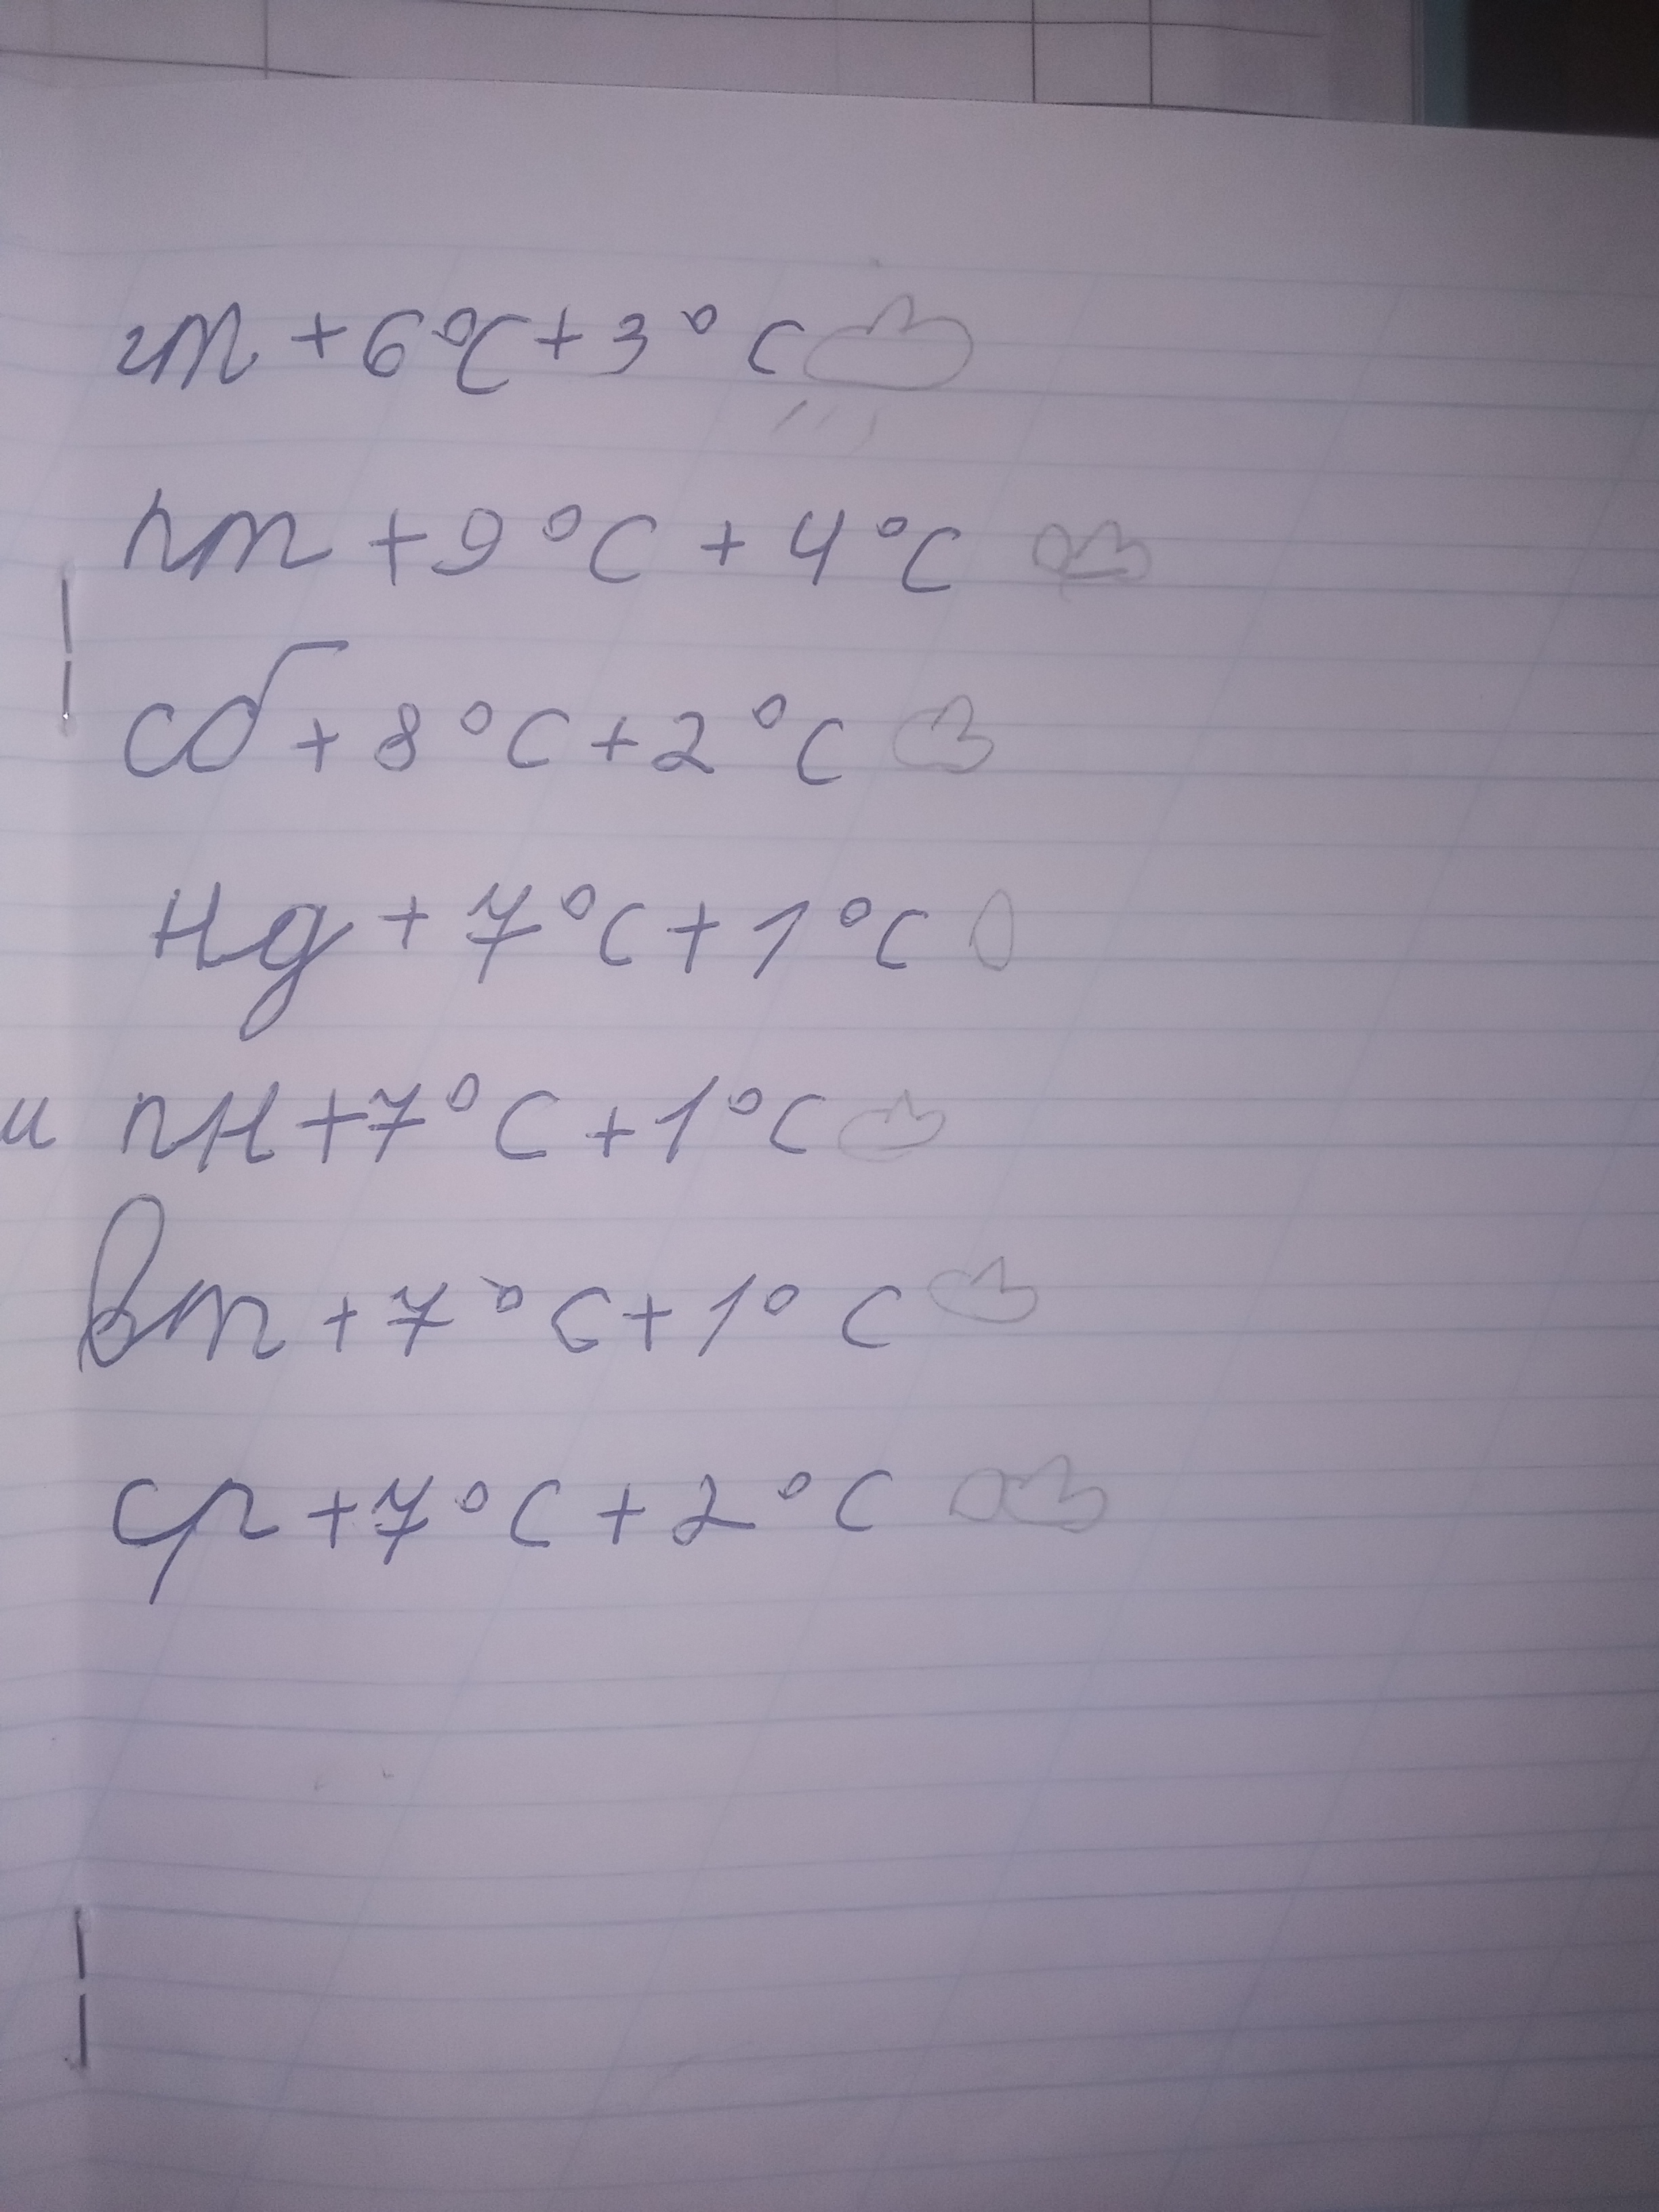 чт +6°C +3°C
пт +9°C +4°C
сб +8°C +2°C
нд +7°C +1°C
и пн +7°C +1°C
вт +7°C +1°C
ср +7°C +2°C